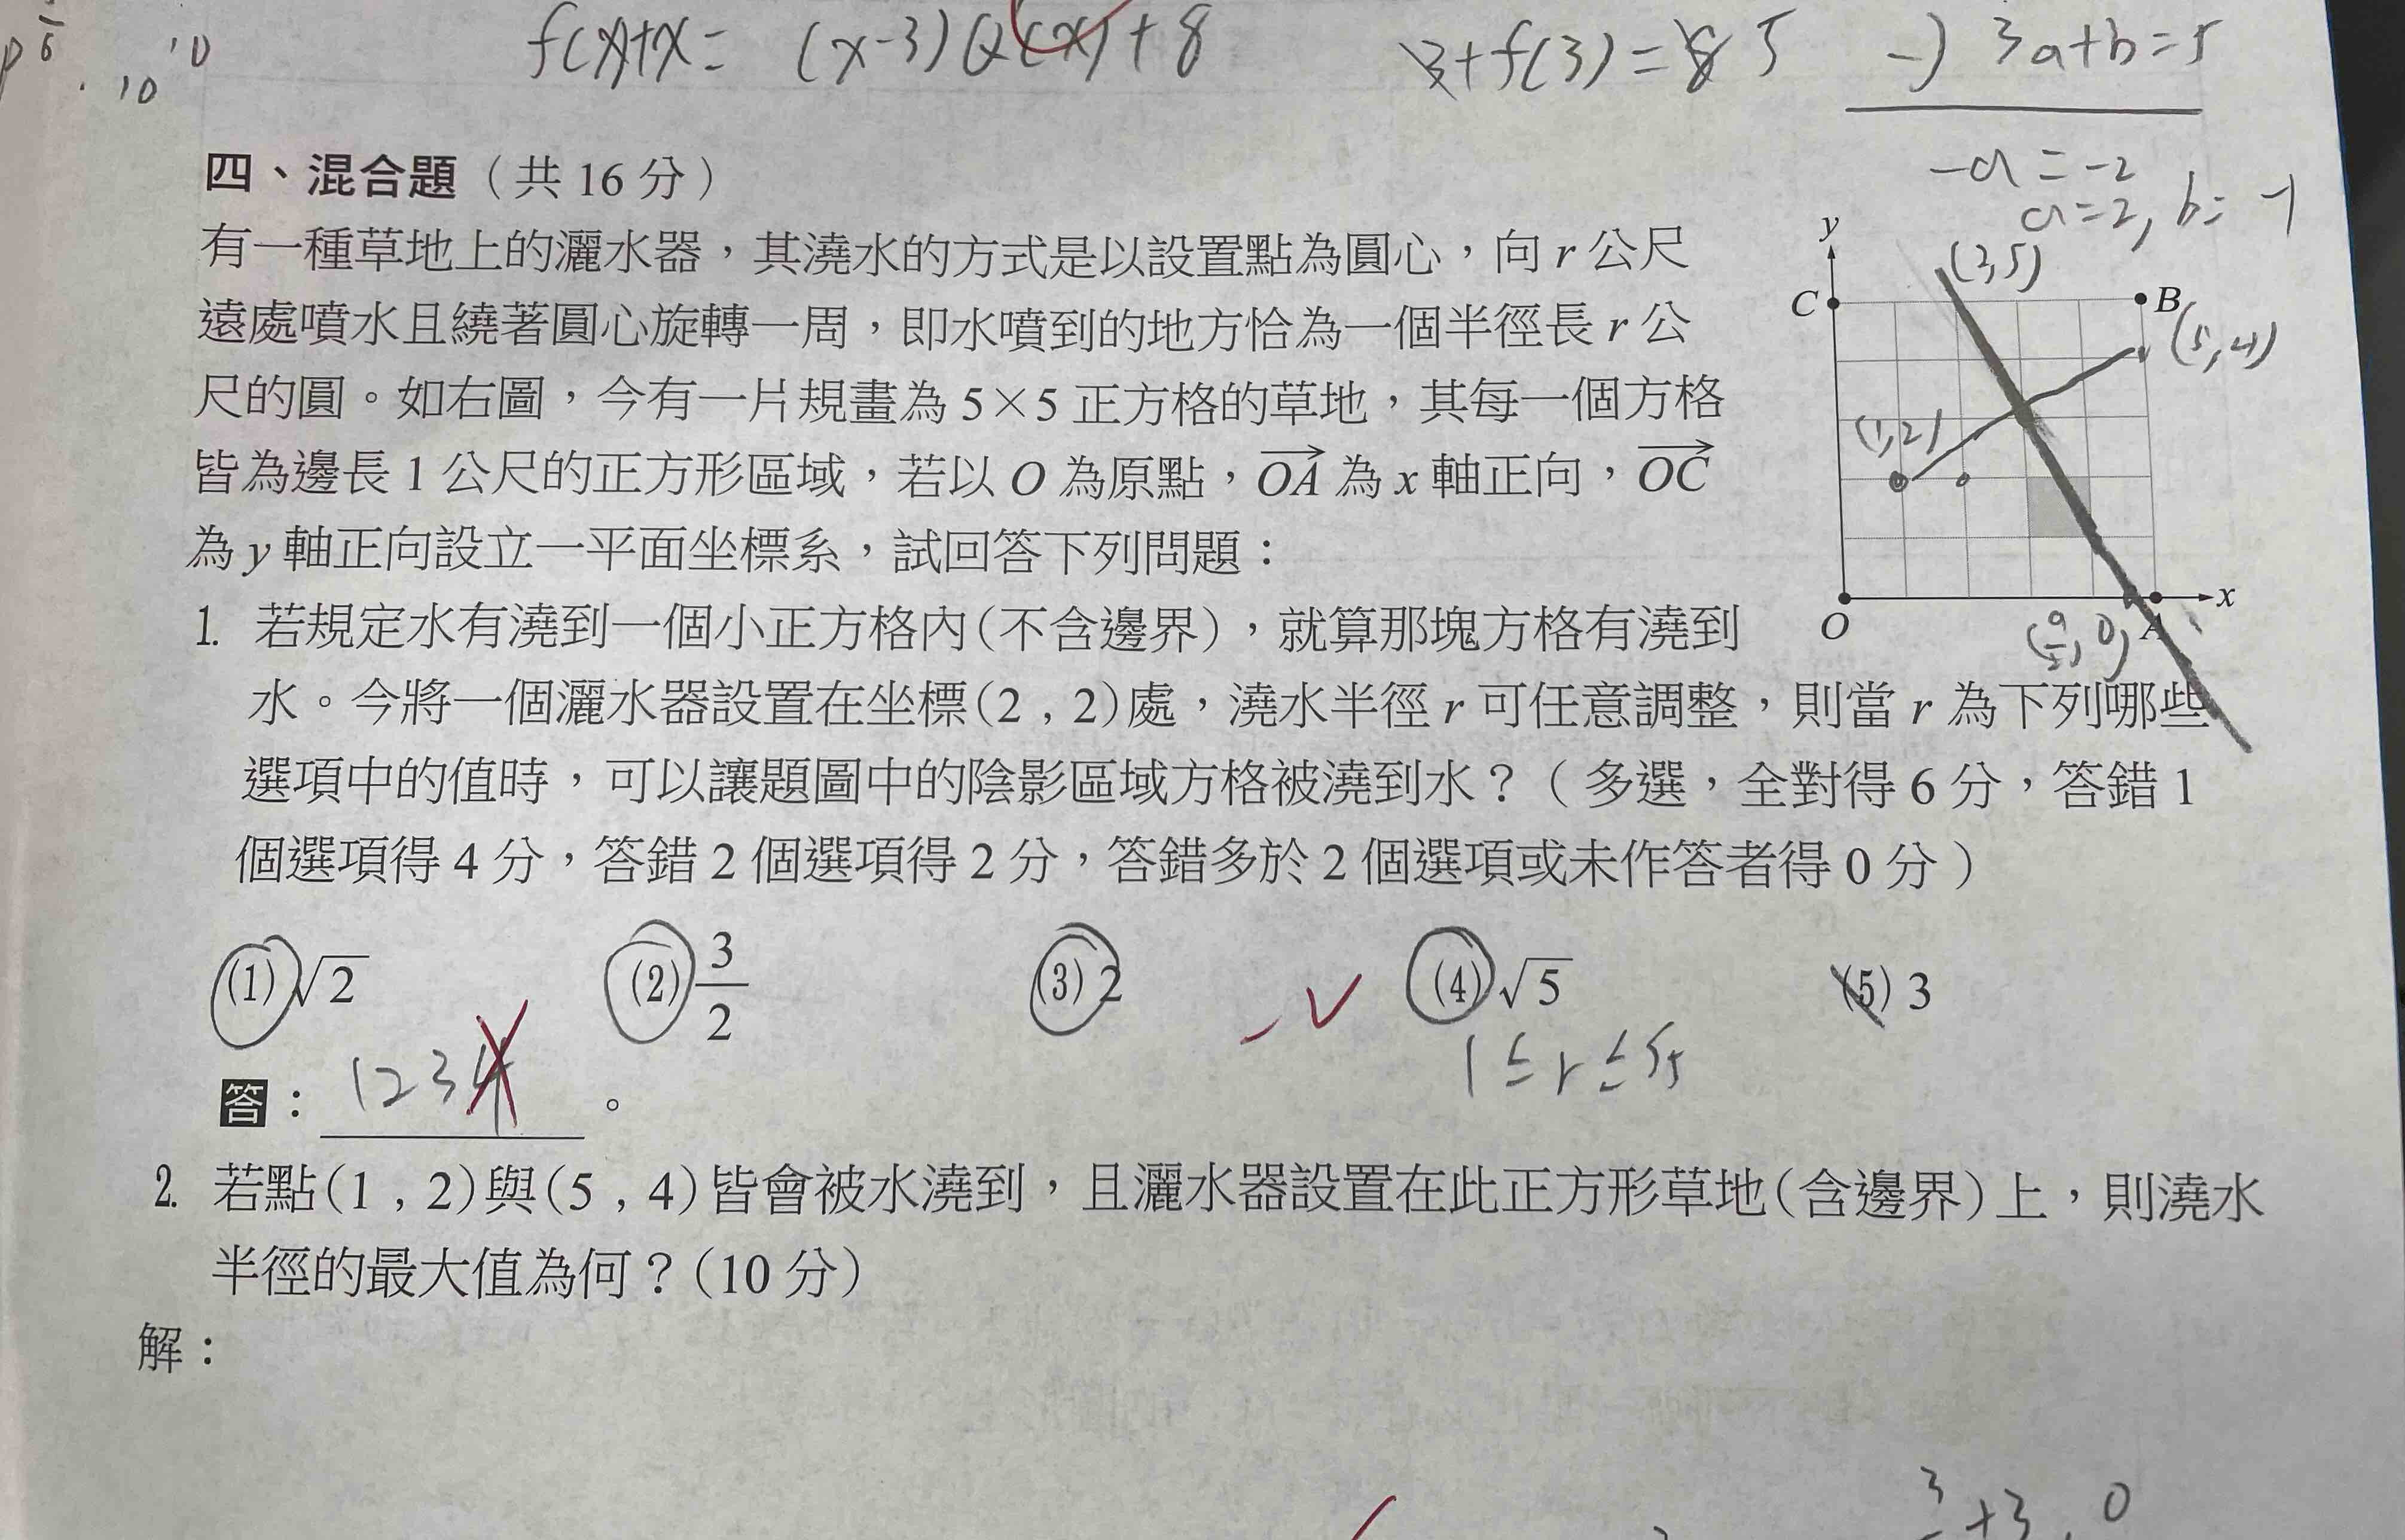 f(x)+x= (x-3)Q(x)+8
3+f(3)=8 5
-) 3a+b=5
10
10
-a=-2
a=2, b=-1
四、混合題（共 16 分）
有一種草地上的灑水器，其澆水的方式是以設置點為圓心，向 r 公尺
遠處噴水且繞著圓心旋轉一周，即水噴到的地方恰為一個半徑長 r 公
尺的圓。如右圖，今有一片規畫為 5×5 正方格的草地，其每一個方格
皆為邊長 1 公尺的正方形區域，若以 O 為原點，OA 為 x 軸正向，OC
為 y 軸正向設立一平面坐標系，試回答下列問題：
y
C
B
(5,4)
(1,2)
O
A
x
(9/2, 0)
1. 若規定水有澆到一個小正方格內(不含邊界)，就算那塊方格有澆到
水。今將一個灑水器設置在坐標(2 , 2)處，澆水半徑 r 可任意調整，則當 r 為下列哪些
選項中的值時，可以讓題圖中的陰影區域方格被澆到水？（多選，全對得 6 分，答錯 1
個選項得 4 分，答錯 2 個選項得 2 分，答錯多於 2 個選項或未作答者得 0 分）
(1) √2 (2) 3/2 (3) 2 (4) √5 (5) 3
1≤r≤√5
答： 1234 。
2. 若點(1 , 2)與(5 , 4)皆會被水澆到，且灑水器設置在此正方形草地(含邊界)上，則澆水
半徑的最大值為何？(10 分)
解：